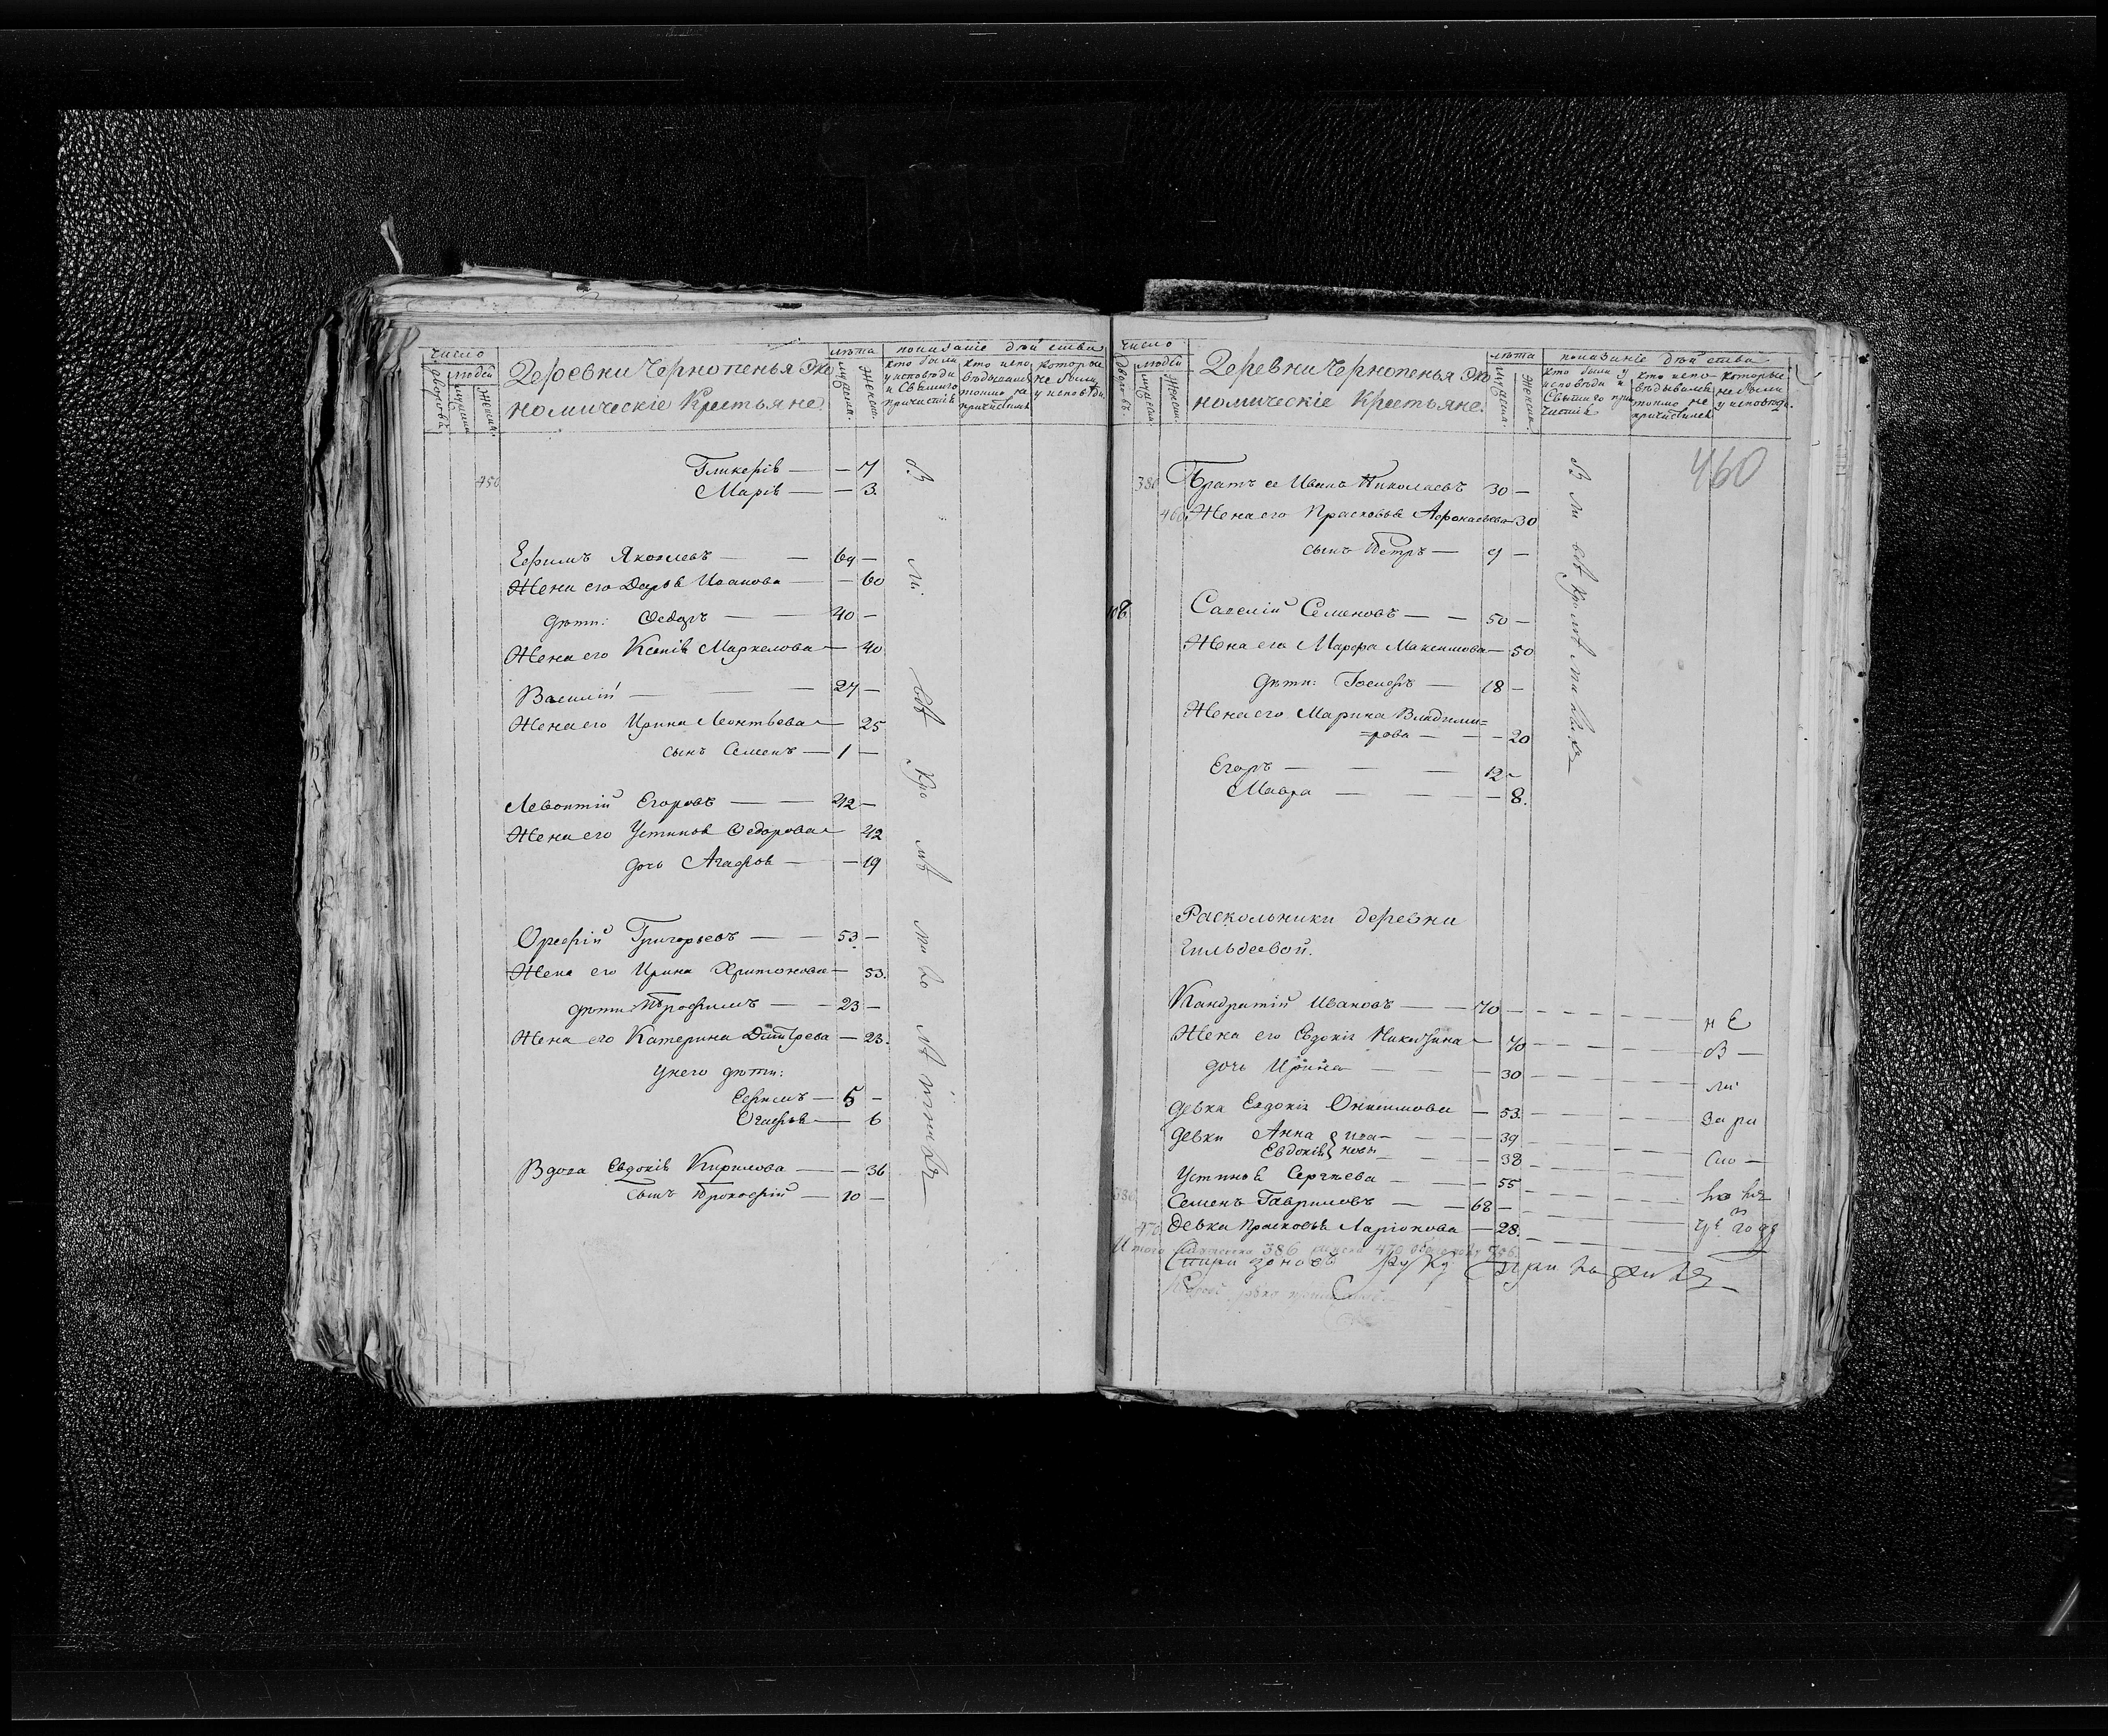 число
людей
дворовъ.
мужеска
женска.
Деревни Чернопенья Эко
номическіе Крестьяне.
лѣта
мужеска.
женска.
показаніе дѣйства
кто были
у исповѣди
и Святаго
причастія
кто испо
вѣдывались
токмо не
причастились
которые
не были
у исповѣди.
Гликерія — — 7
450 Марія — — 3.
Ефимъ Яковлевъ — — 64 —
Жена его Дарья Иванова — — 60
дѣти: Ѳедоръ — — 40 —
Жена его Ксенія Маркелова — 40
Василій — — 27 —
Жена его Ирина Леонтьева — 25
сынъ Семенъ — 1 —
Левонтій Егоровъ — — 42 —
Жена его Устинья Ѳедорова — 42
дочь Агафья — — 19
Орефій Григорьевъ — — 53 —
Жена его Ирина Харитонова — 53.
дѣти Трофимъ — — 23 —
Жена его Катерина Дмитрева — 23.
у него дѣти:
Ефимъ — 5 —
Огафья — 6
Вдова Евдокія Кирилова — — 36
Сынъ Прокофій — 10 —
число
людей
дворовъ.
мужеска.
женска.
Деревни Чернопенья Эко
номическіе Крестьяне.
лѣта
мужеска.
женска.
показаніе дѣйства
кто были у
исповѣди и
Святаго при
частія
кто испо-
вѣдывались
токмо не
причастились
которые
не были
у исповѣди.
460
380 Братъ ее Иванъ Николаевъ 30 —
460. Жена его Прасковья Афонасьева 30
сынъ Петръ — 9 —
108. Савелій Семеновъ — — 50 —
Жена его Марфа Максимова — 50
дѣти: Іосифъ — 18 —
Жена его Марина Владими=
=рова — — — 20
Егоръ — — — 12 —
Мавра — — — 8.
Раскольники деревни
Гильдеевой.
Кандратій Ивановъ — 70 —
Жена его Евдокія Никитина — 70
дочь Ирина — — 30
девка Евдокія Онисимова — 53.
девки Анна } Ива — — 39
Евдокія } новы — — 38
Устинья Сергѣева — — 55
Семенъ Гавриловъ — — 68 —
470 девка Прасковья Ларіонова — 28.
Итого мужеска 386 женска 470 обоего полу 856.
руку приложилъ